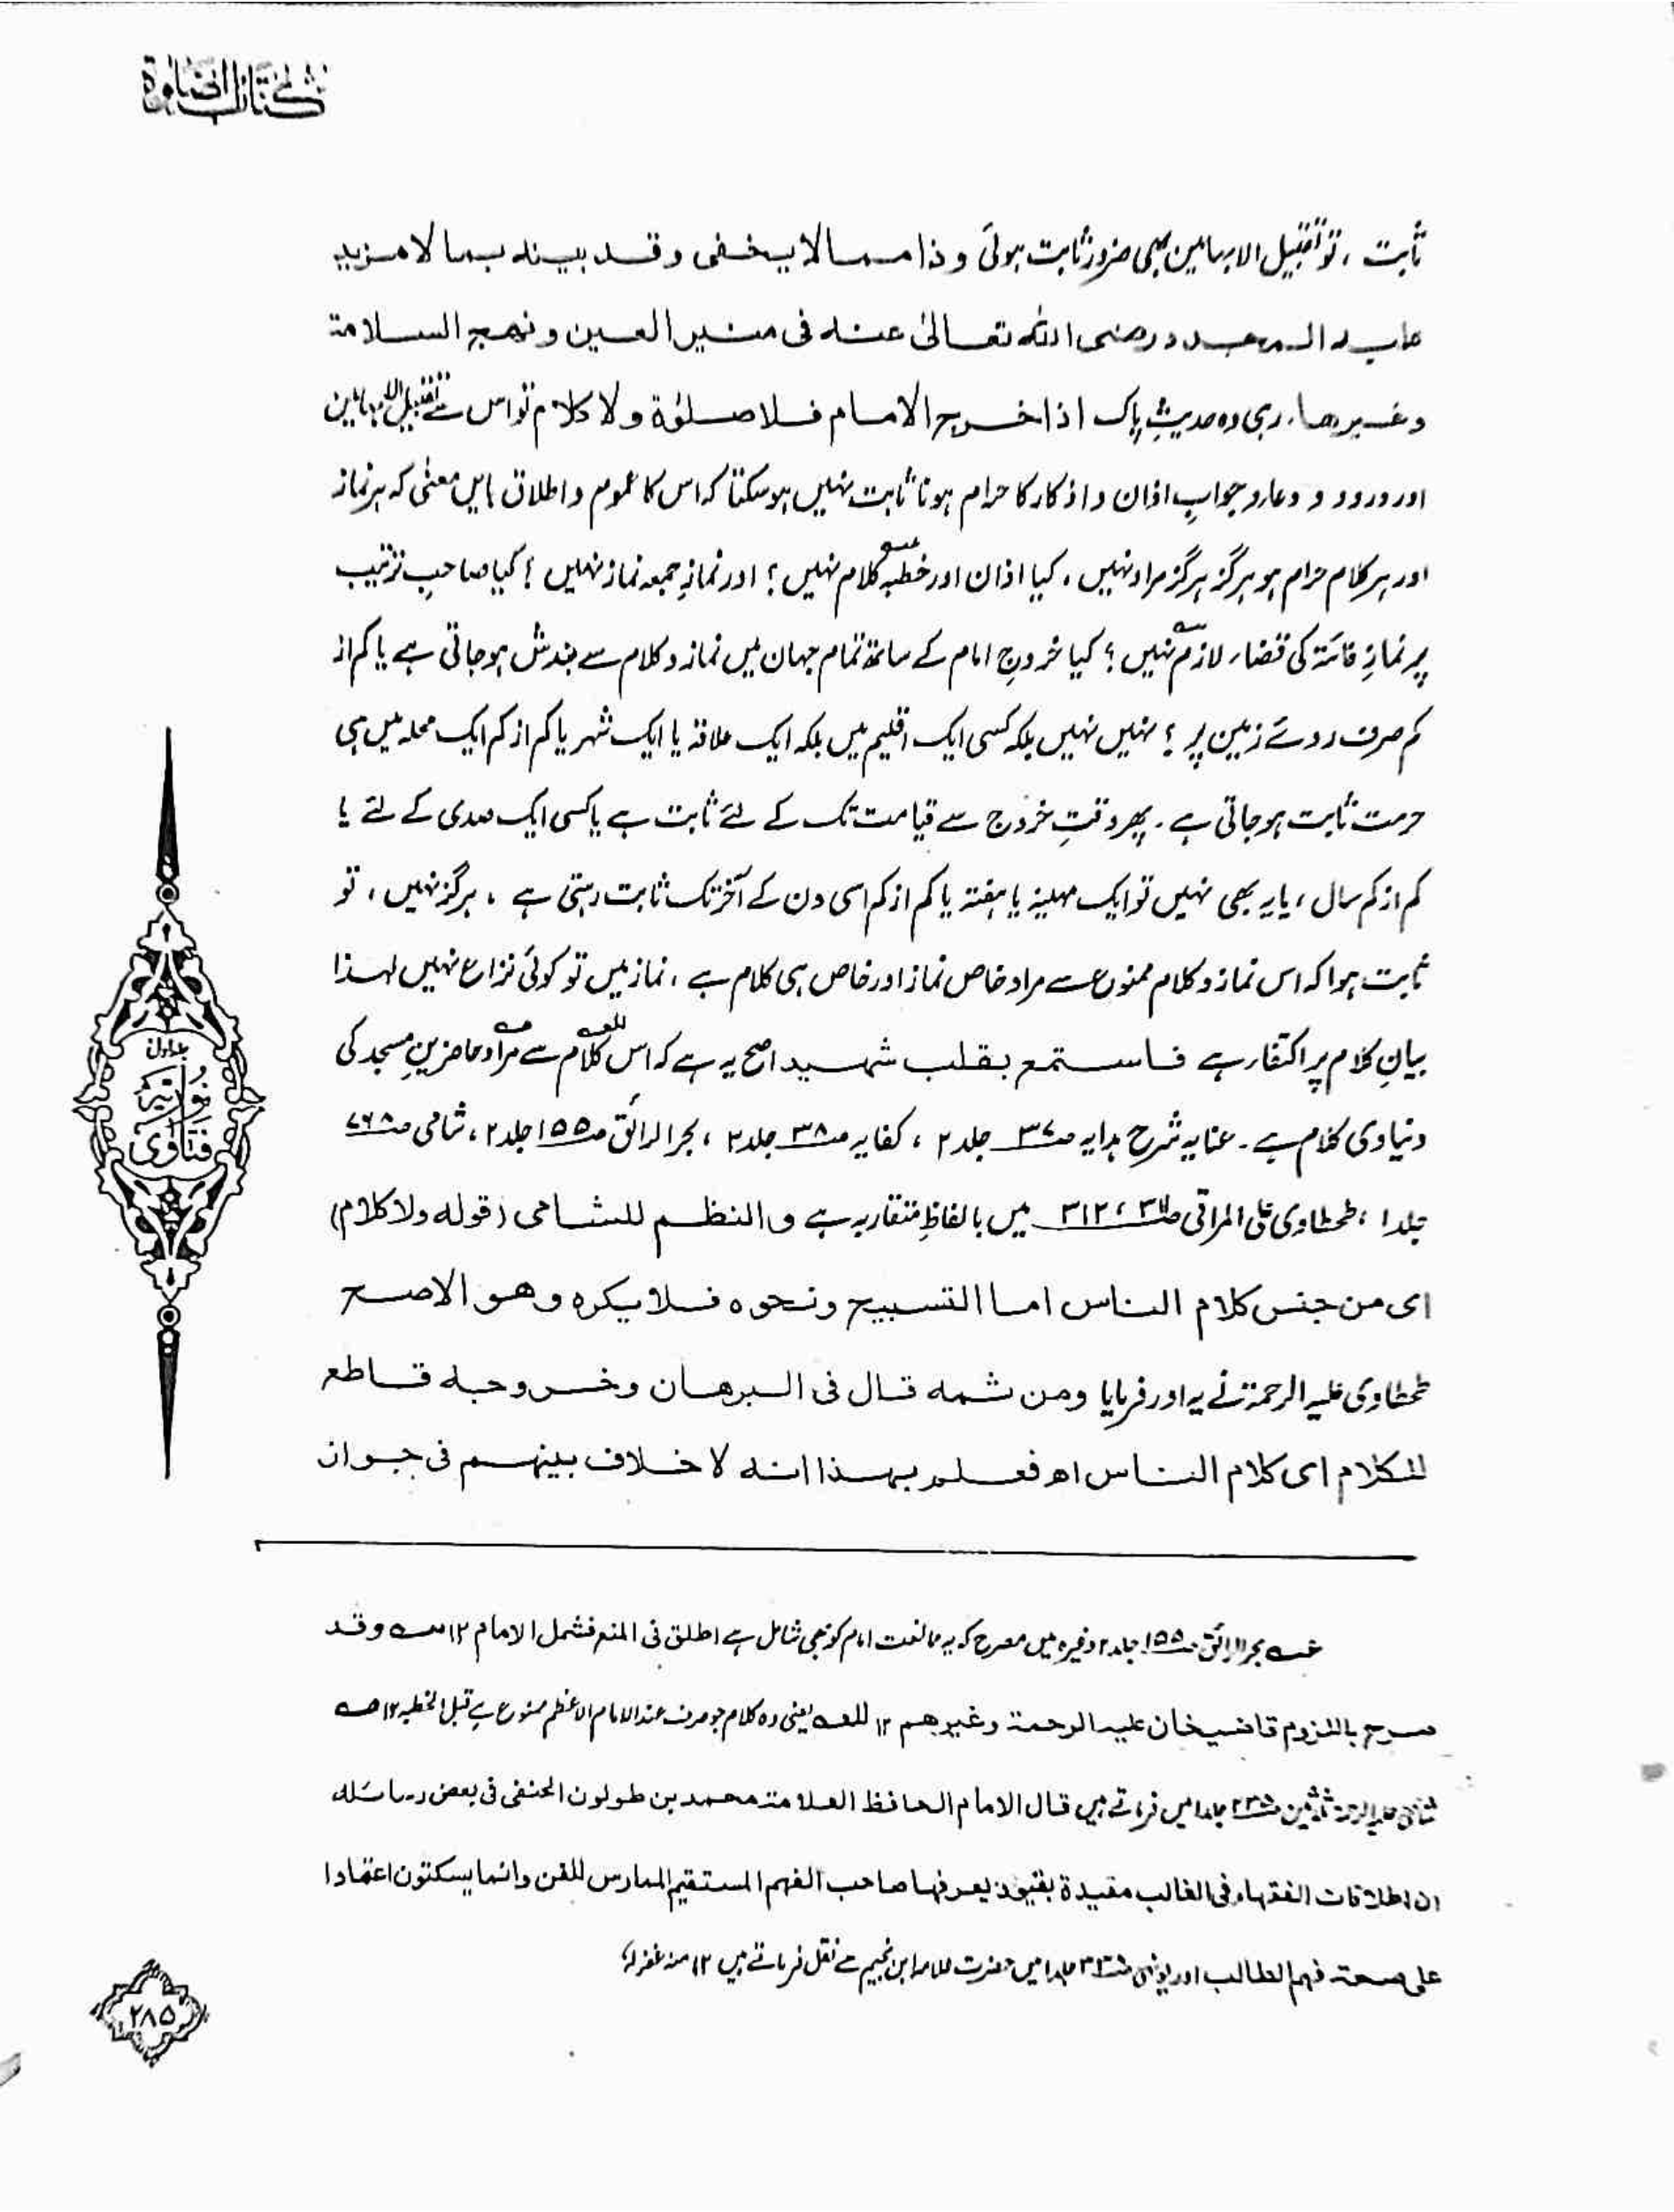 کتاب الصلوٰۃ
ثابت، تو تقبیل الابہامین بھی ضرور ثابت ہوئی وذا مما لا یخفی وقد بینہ بما لا مزید
علیہ المجدد رضی اللہ تعالیٰ عنہ فی منیر العین و نھج السلامۃ
وغیرھا۔ رہی وہ حدیثِ پاک اذا خرج الامام فلا صلوٰۃ ولا کلام تو اس سے تقبیل الابہامین
اور درود و دعاء و جوابِ اذان و اذکار کا حرام ہونا ثابت نہیں ہو سکتا کہ اس کا عموم و اطلاق بایں معنٰی کہ ہر نماز
اور ہر کلام حرام ہو ہرگز ہرگز مراد نہیں۔ کیا اذان اور خطبہ عــہ کلام نہیں؟ اور نمازِ جمعہ نماز نہیں؟ کیا صاحبِ ترتیب
پر نمازِ فائتہ کی قضاء لازم نہیں؟ کیا خروجِ امام کے ساتھ تمام جہان میں نماز و کلام سے بندش ہو جاتی ہے یا کم از
کم صرف روئے زمین پر؟ نہیں نہیں بلکہ کسی ایک اقلیم میں بلکہ ایک علاقہ یا ایک شہر یا کم از کم ایک محلہ میں ہی
حرمت ثابت ہو جاتی ہے۔ پھر وقتِ خروج سے قیامت تک کے لئے ثابت ہے یا کسی ایک صدی کے لئے یا
کم از کم سال، یا یہ بھی نہیں تو ایک مہینہ یا ہفتہ یا کم از کم اسی دن کے آخر تک ثابت رہتی ہے، ہرگز نہیں، تو
ثابت ہوا کہ اس نماز و کلام ممنوع سے مراد خاص نماز اور خاص ہی کلام ہے، نماز میں تو کوئی نزاع نہیں لہذا
بیانِ کلام پر اکتفاء ہے فاستمع بقلب شہید اصح یہ ہے کہ اس کلام للعــہ سے مراد صــہ حاضرینِ مسجد کی
دنیاوی کلام ہے۔ عنایہ شرح ہدایہ ص۳۷ جلد ۲، کفایہ ص۳۸ جلد ۲، بحر الرائق ص۱۵۵ جلد ۲، شامی ص۷۶۸
جلد ۱، طحطاوی علی المراقی ص۳۱۱، ۳۱۲ میں بالفاظِ متقاربہ ہے والنظم للشامی (قولہ ولا کلام)
ای من جنس کلام الناس اما التسبیح ونحوہ فلا یکرہ وھو الاصح
طحطاوی علیہ الرحمۃ نے یہ اور فرمایا ومن ثمہ قال فی البرھان وخروجہ قاطع
للکلام ای کلام الناس اھ فعلم بہذا انہ لا خلاف بینہم فی جواز
جلد اول
فتاوی نوریہ
عــہ بحر الرائق ص۱۵۵ جلد ۲ وغیرہ میں مصرح کہ یہ ممانعت امام کو بھی شامل ہے اطلق فی المنع فشمل الامام ۱۲ ســہ وقد
صرح باللزوم قاضیخان علیہ الرحمۃ وغیرھم ۱۲ للعــہ یعنی وہ کلام جو صرف عند الامام الاعظم ممنوع ہے قبل الخطبہ ۱۲ صــہ
شامی علیہ الرحمۃ جلد ۱ میں فرماتے ہیں قال الامام الحافظ العلامۃ محمد بن طولون الحنفی فی بعض رسائلہ
ان اطلاقات الفقہاء فی الغالب مقیدۃ بقیود یعرفہا صاحب الفہم المستقیم الممارس للفن وانما یسکتون اعتمادا
علی صحۃ فہم الطالب اور یونہی جلد ۱ میں حضرت علامہ ابن نجیم سے نقل فرماتے ہیں ۱۲ منہ غفرلہ
۲۸۵